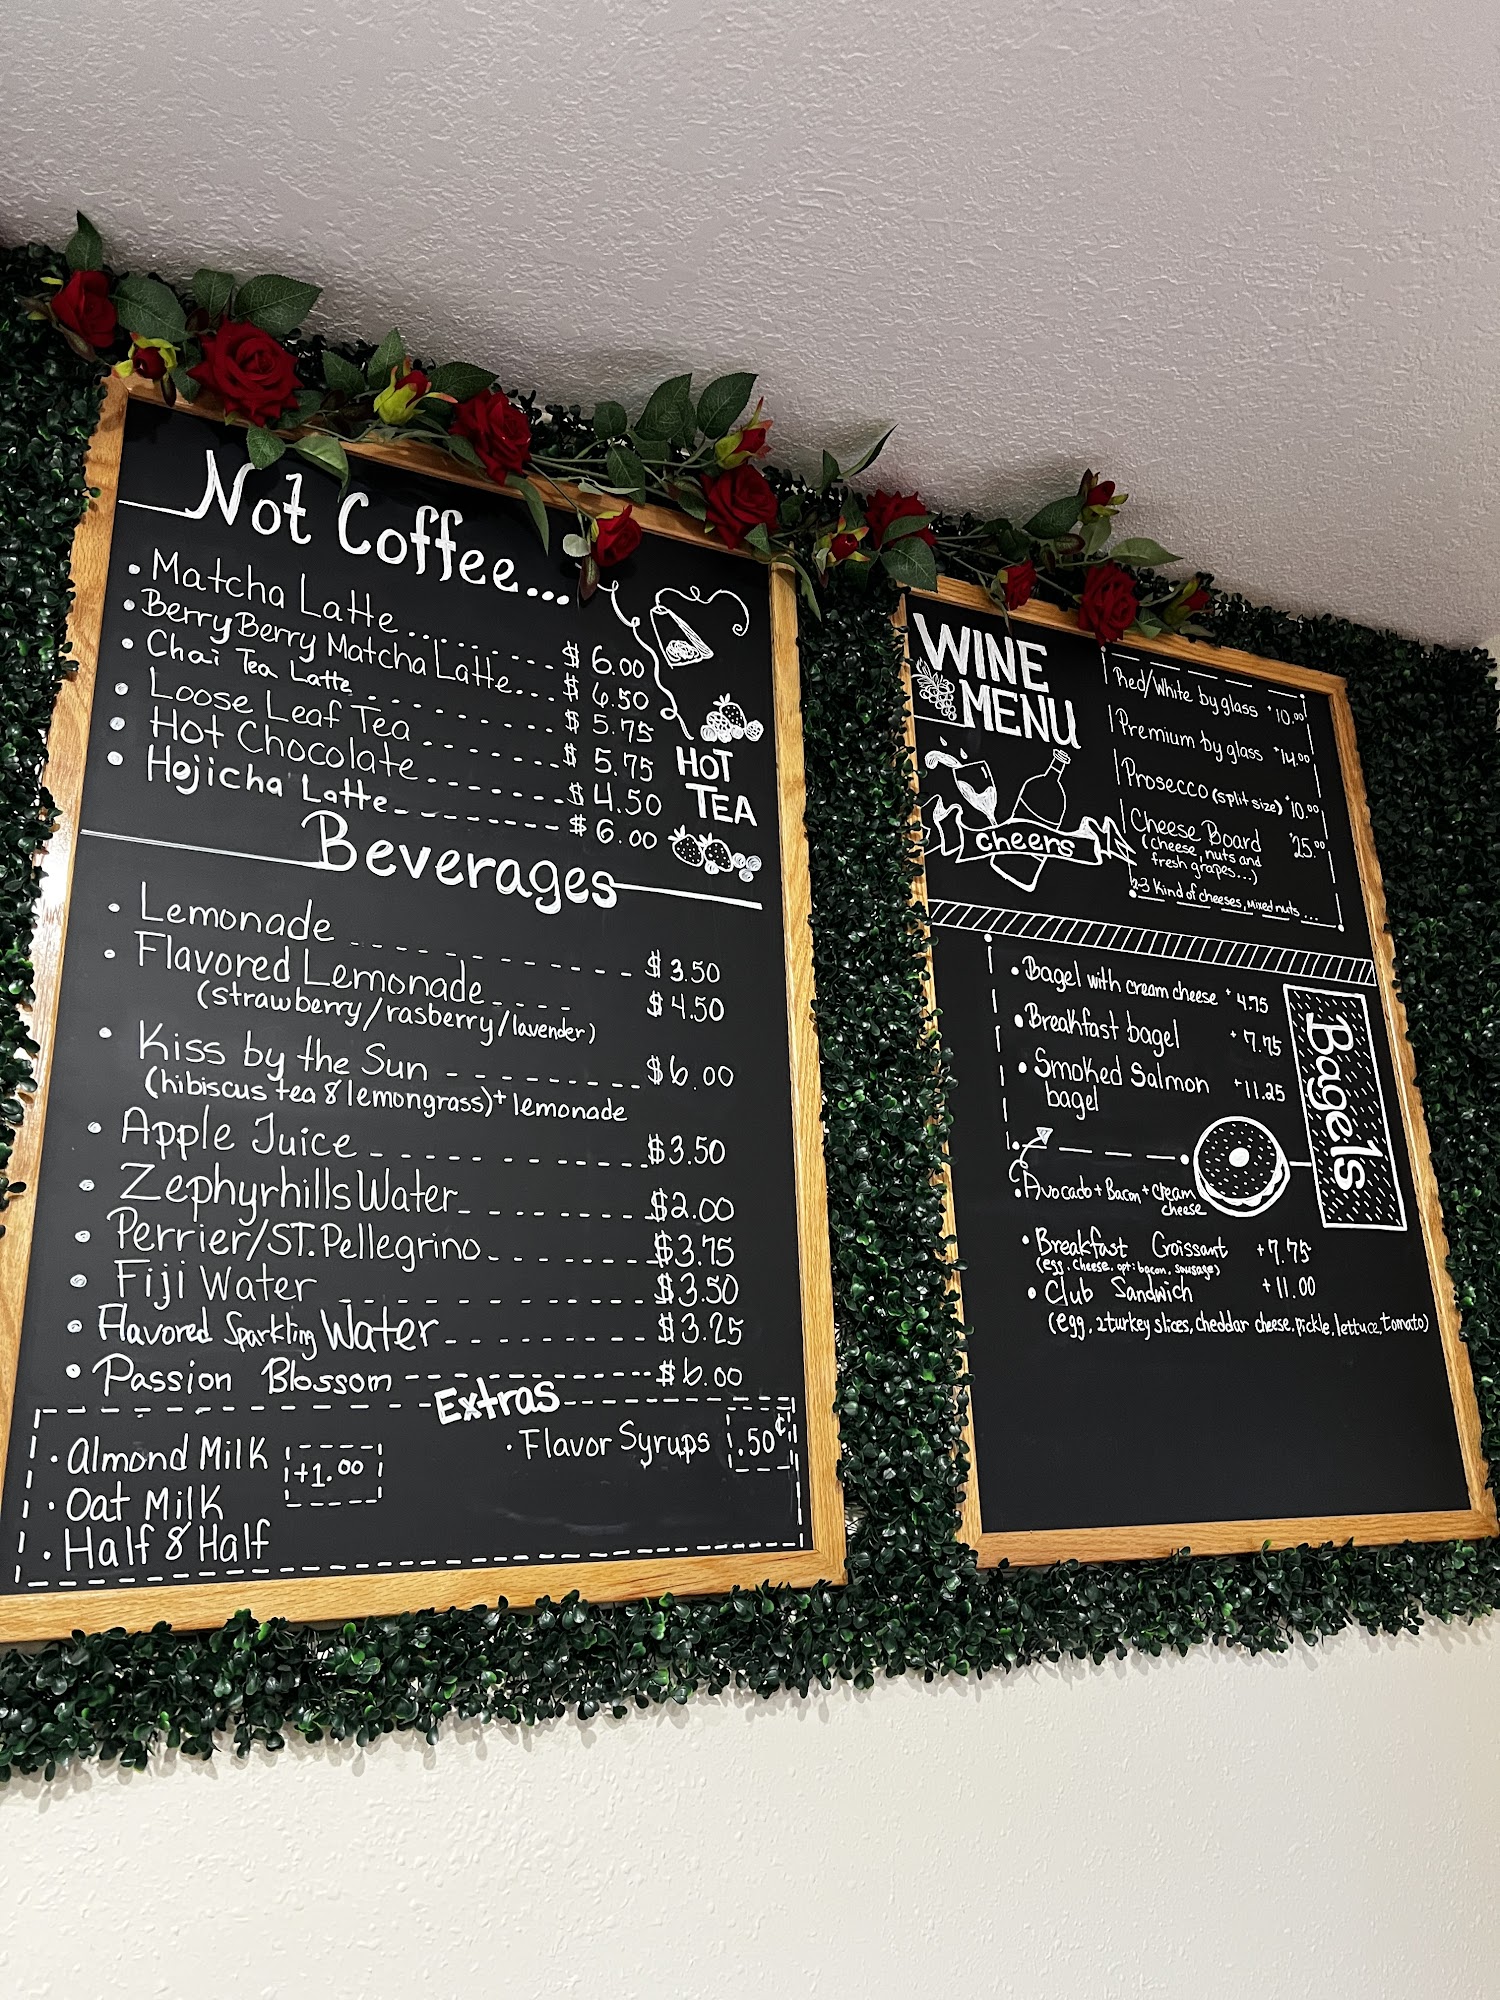 Not Coffee...
• Matcha Latte........ $ 6.00
• Berry Berry Matcha Latte... $ 6.50
• Chai Tea Latte ........ $ 5.75
• Loose Leaf Tea ...... $ 5.75
• Hot Chocolate....... $ 4.50
• Hojicha Latte-------- $ 6.00
HOT
TEA
Beverages
• Lemonade ------------ $ 3.50
• Flavored Lemonade---- $ 4.50
(strawberry/rasberry/lavender)
• Kiss by the Sun --------- $6.00
(hibiscus tea & lemongrass)+ lemonade
• Apple Juice ------------ $3.50
• Zephyrhills Water-------- $2.00
• Perrier/ST. Pellegrino------- $3.75
• Fiji Water ------------- $3.50
• Flavored Sparkling Water--------- $3.25
• Passion Blossom ---------- $6.00
Extras
• Almond Milk +1.00
• Oat Milk
• Half & Half
• Flavor Syrups .50¢
WINE
MENU
cheers
Red/White by glass 10.00
Premium by glass 14.00
Prosecco (split size) 10.00
Cheese Board 25.00
(cheese, nuts and
fresh grapes...)
2-3 Kind of cheeses, mixed nuts ...
Bagels
• Bagel with cream cheese + 4.75
• Breakfast bagel + 7.75
• Smoked Salmon +11.25
bagel
• Avocado + Bacon + cream
cheese
• Breakfast Croissant +7.75
(egg. cheese. opt: bacon, sausage)
• Club Sandwich +11.00
(egg, 2 turkey slices, cheddar cheese, pickle, lettuce, tomato)